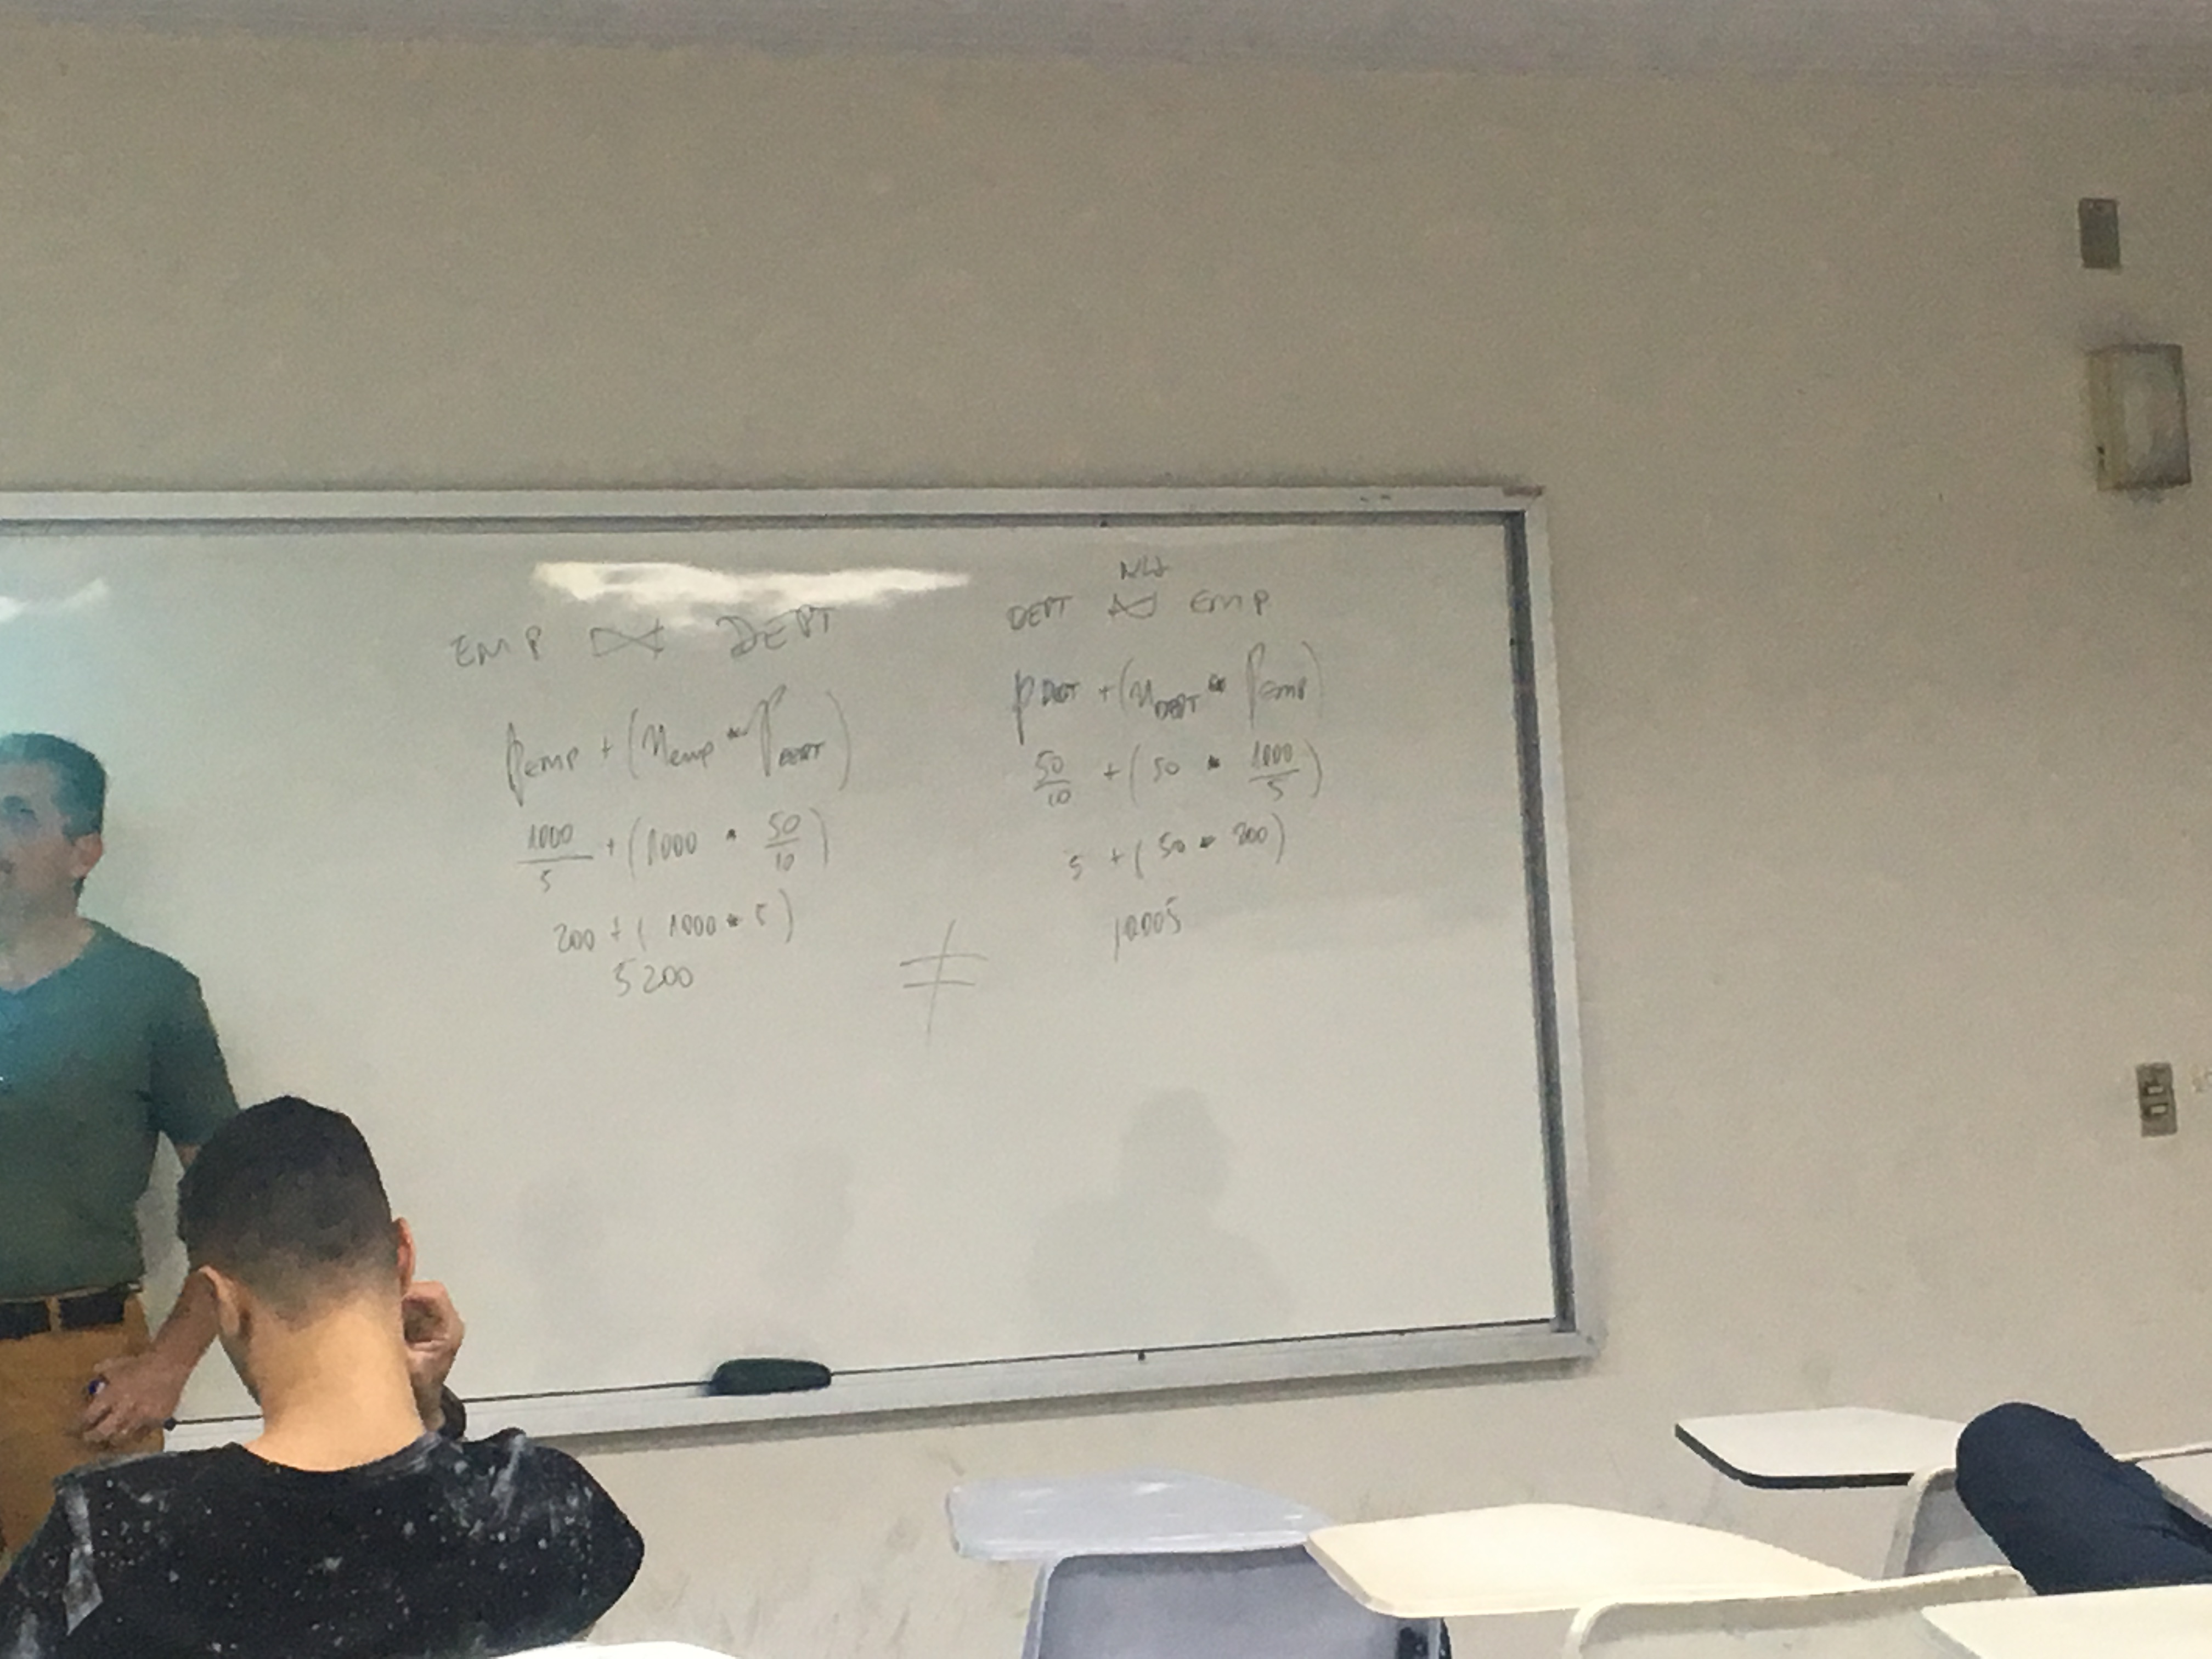 EMP ⋈ DEPT
pEMP + (nEMP * pDEPT)
1000/5 + (1000 * 50/10)
200 + (1000 * 5)
5200
≠
DEPT ⋈ EMP
pDEPT + (nDEPT * pEMP)
50/10 + (50 * 1000/5)
5 + (50 * 200)
10005